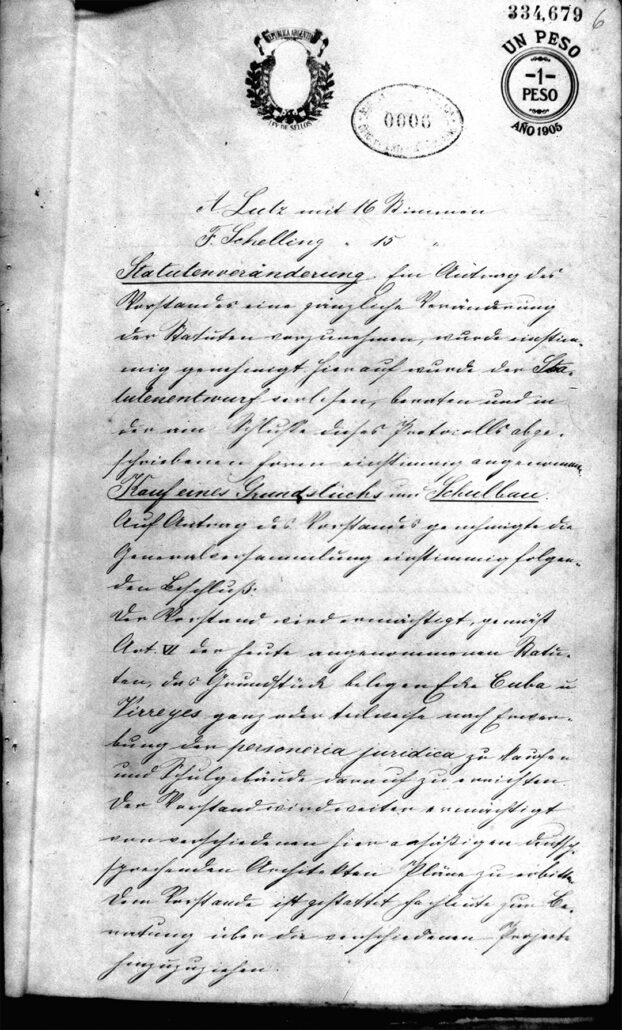 334,679 6
REPUBLICA ARGENTINA
LEY DE SELLOS
0006
UN PESO
1
PESO
AÑO 1905
A Lutz mit 16 Stimmen
F. Schelling " 15 "
Statutenveränderung. Ein Antrag des
Vorstandes eine gänzliche Veränderung
der Statuten vorzunehmen, wurde einstim-
mig genehmigt. Hierauf wurde der Sta-
tutenentwurf verlesen, beraten und in
der am Schluße dieses Protocolls abge-
schriebenen Form einstimmig angenommen.
Kauf eines Grundstücks und Schulbau.
Auf Antrag des Vorstandes genehmigte die
Generalversammlung einstimmig folgen-
den Beschluß.
Der Vorstand wird ermächtigt, gemäß
Art. VI der heute angenommenen Statu-
ten, das Grundstück belegen Ecke Cuba u
Virreyes ganz oder teilweise nach Erwer-
bung der personeria juridica zu kaufen
und Schulgebäude darauf zu errichten.
Der Vorstand wird weiter ermächtigt
von verschiedenen hier ansäßigen deutsch
sprechenden Architekten Pläne zu erbitten.
Dem Vorstande ist gestattet Fachleute zur Be-
ratung über die verschiedenen Projecte
hinzuzuziehen.